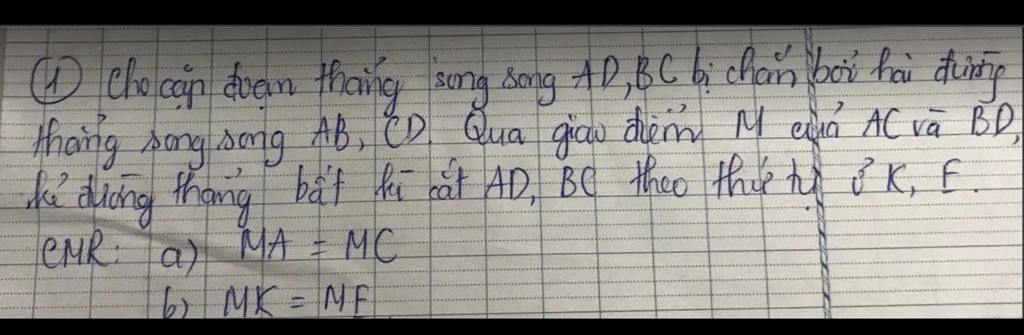 ① Cho cặp đoạn thẳng song song AD, BC bị chắn bởi hai đường
thẳng song song AB, CD. Qua giao điểm M của AC và BD,
kẻ đường thẳng bất kì cắt AD, BC theo thứ tự ở K, E.
CMR: a) MA = MC
b) MK = ME